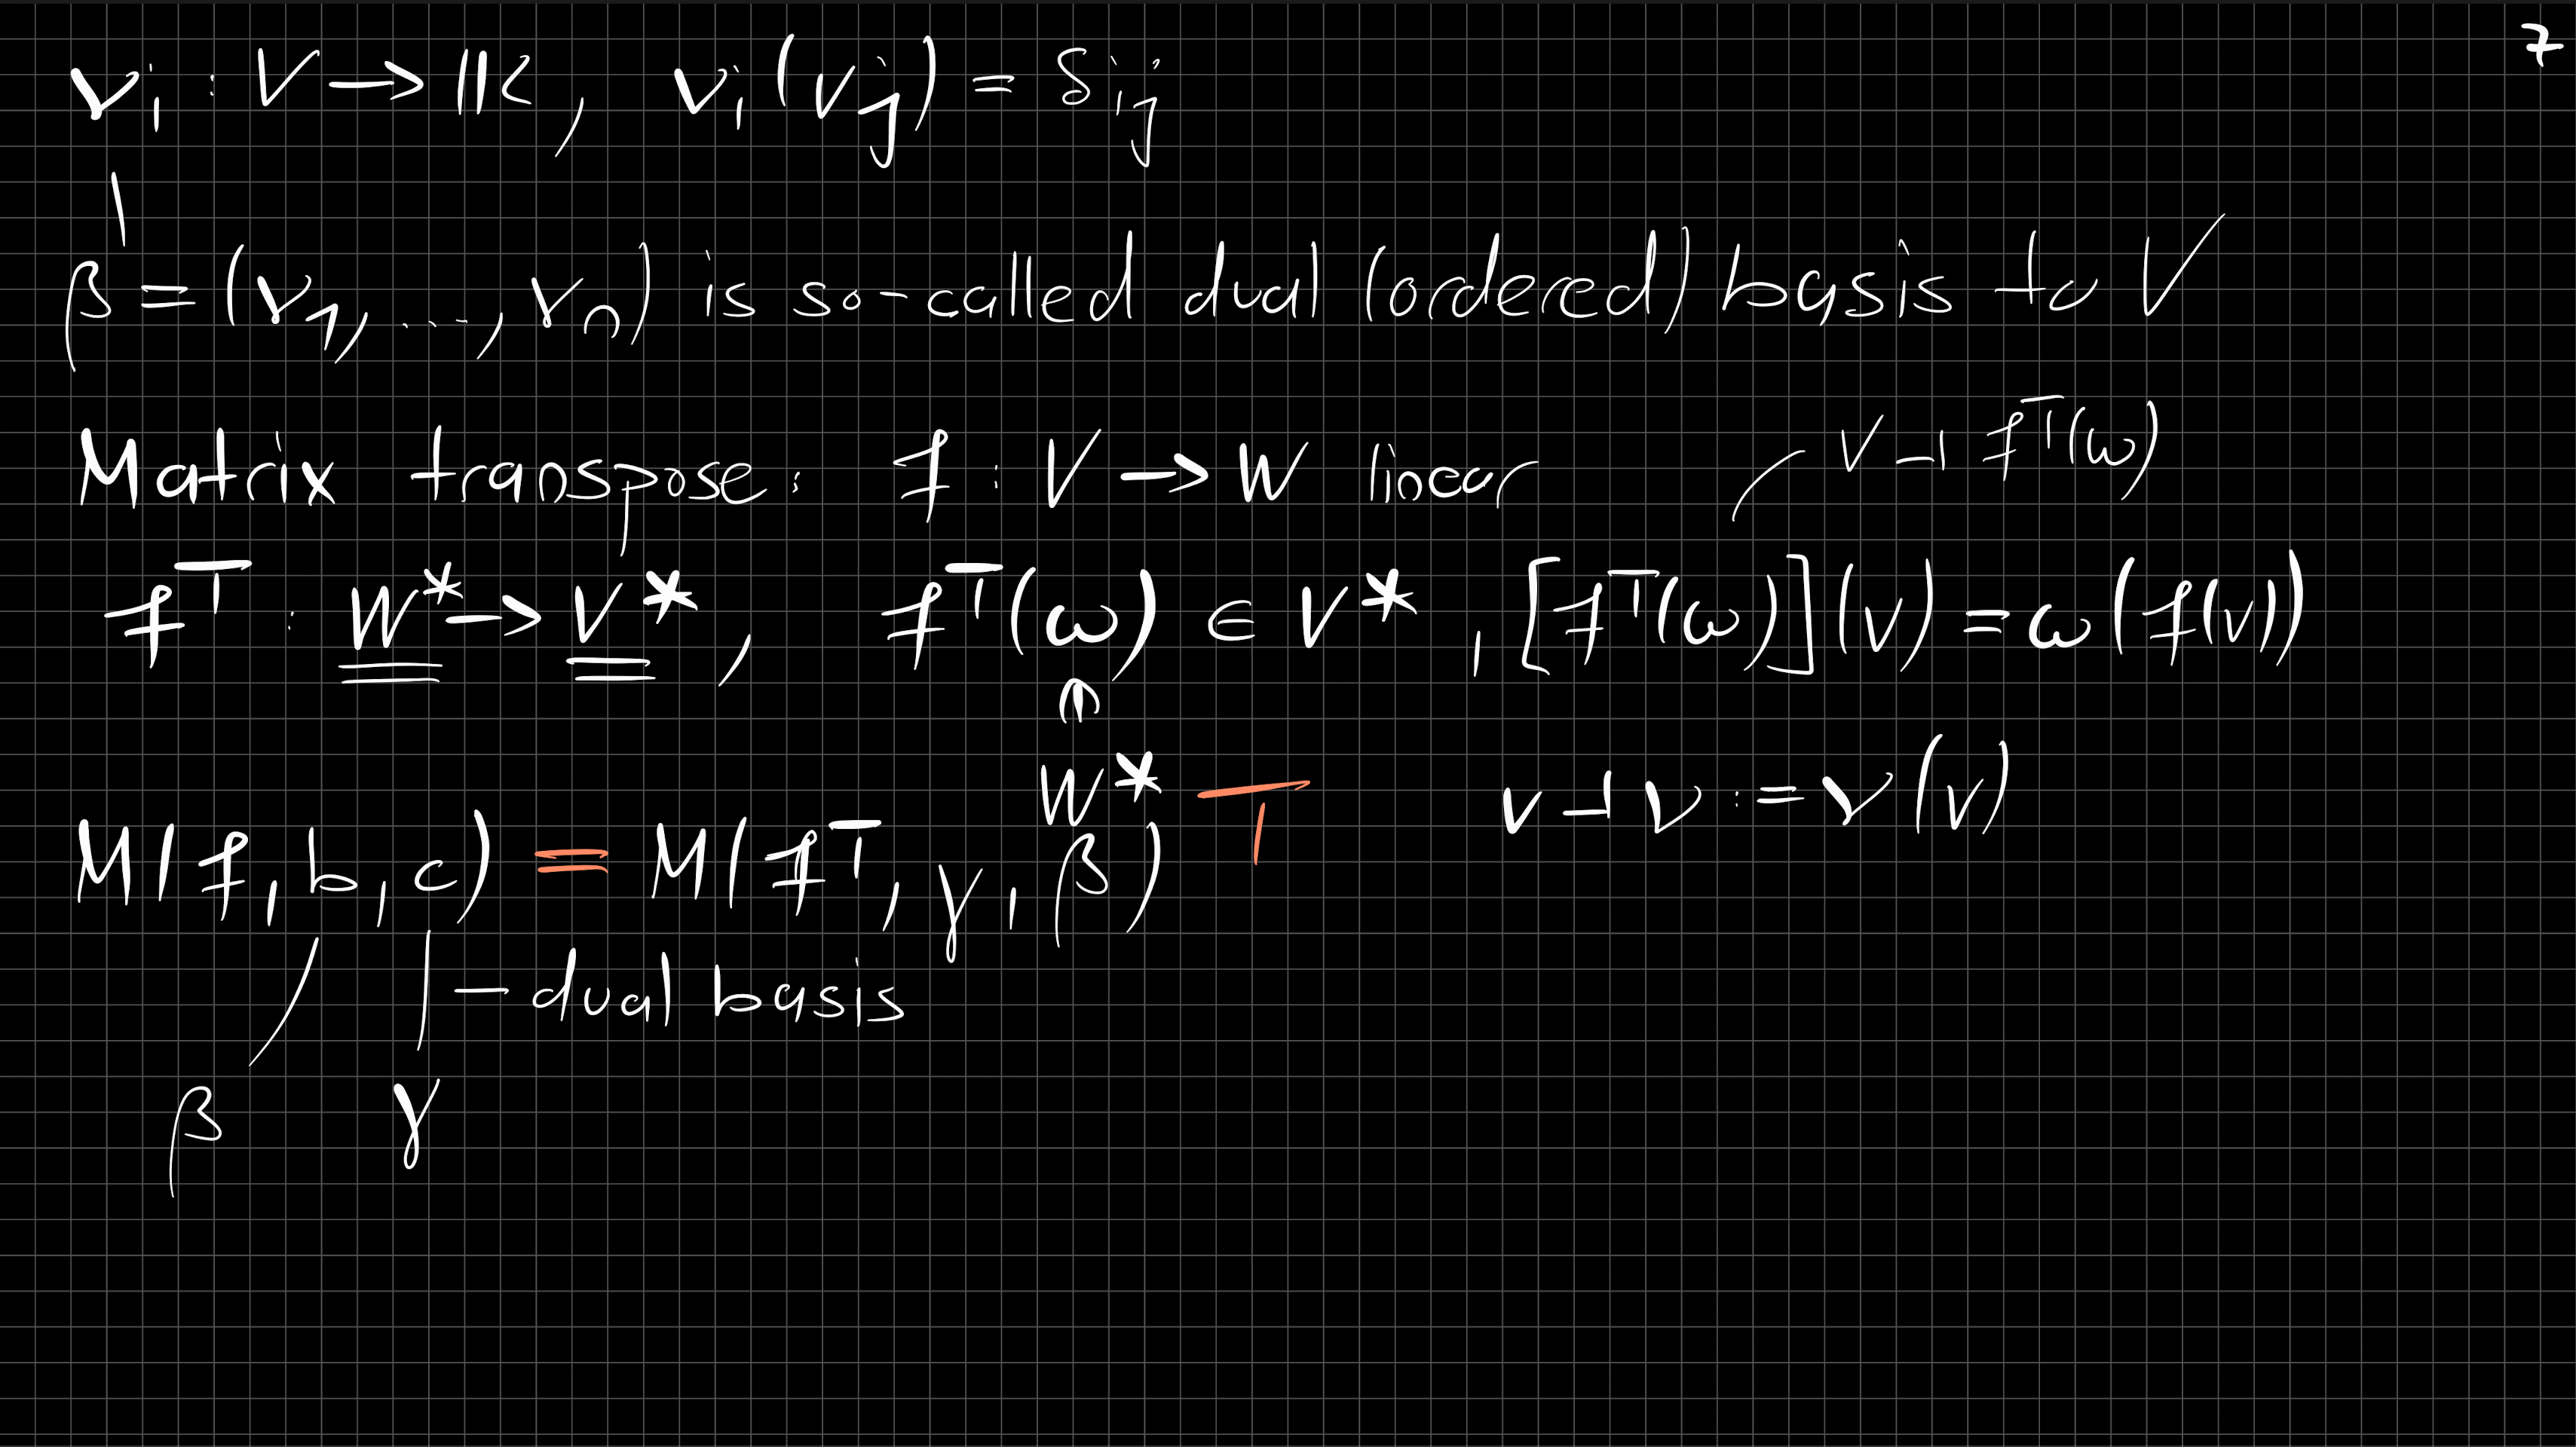 7
νᵢ : V → 𝕂, νᵢ(vⱼ) = δᵢⱼ
β = (ν₁, ..., νₙ) is so-called dual (ordered) basis to V
Matrix transpose: f : V → W linear
v ⊣ fᵀ(ω)
fᵀ : W* → V*, fᵀ(ω) ∈ V*, [fᵀ(ω)](v) = ω(f(v))
⋒
W*
v ⊣ ν := ν(v)
M(f, b, c) = M(fᵀ, γ, β)ᵀ
– dual basis
β γ